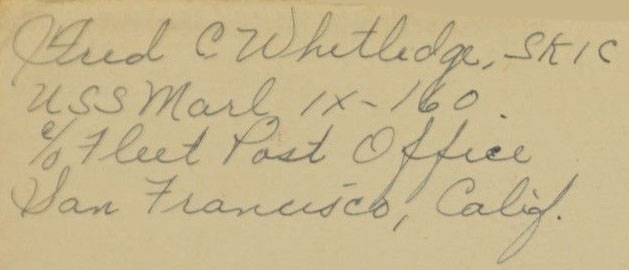 Fred C Whitledge, SK1C
USS Marl IX-160
c/o Fleet Post Office
San Francisco, Calif.